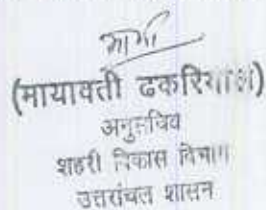 (मायावती ढकरियाल)
अनुसचिव
शहरी विकास विभाग
उत्तरांचल शासन